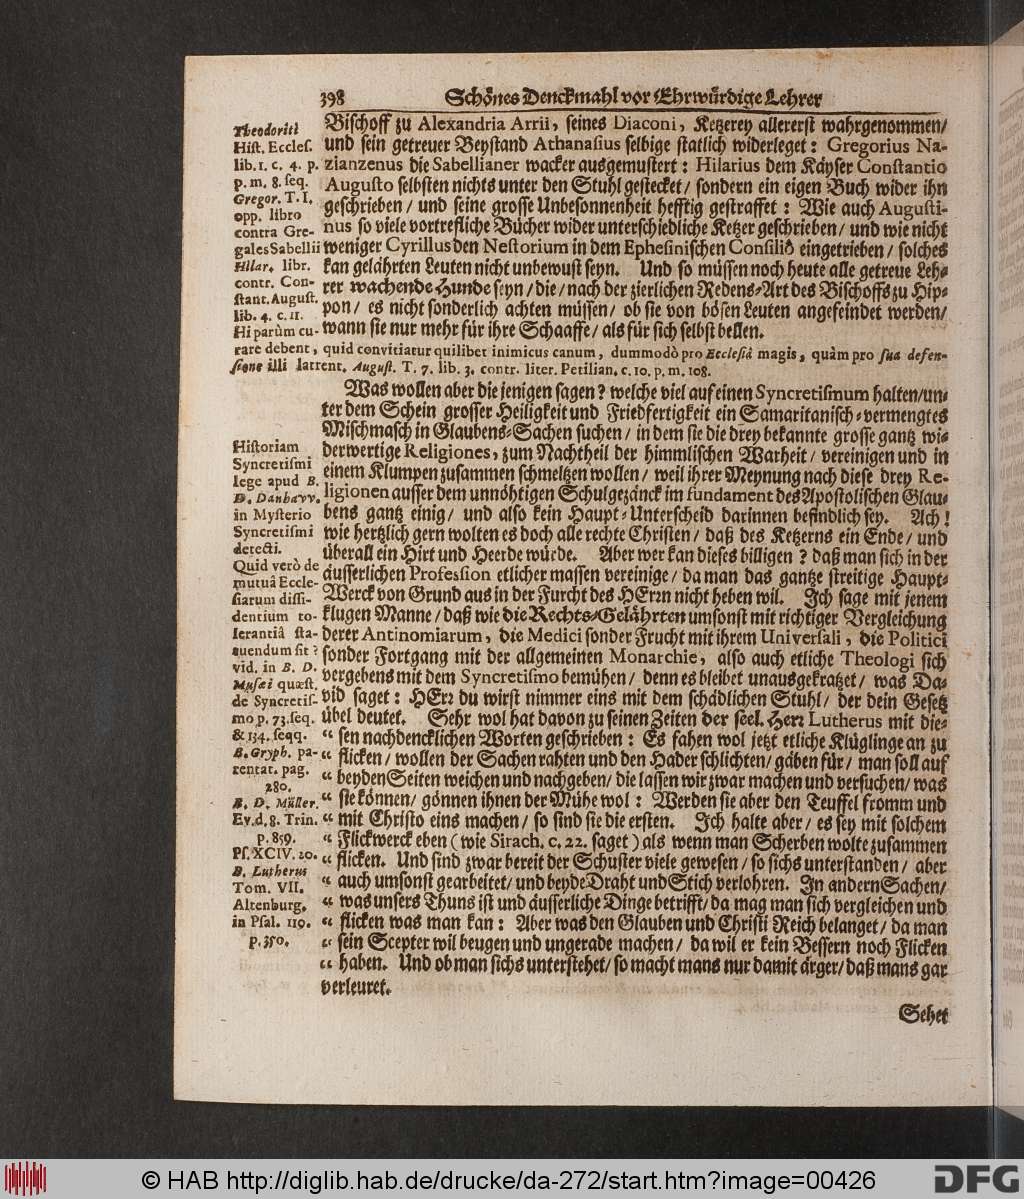 398 Schönes Denckmahl vor Ehrwürdige Lehrer
Bischoff zu Alexandria Arrii, seines Diaconi, Ketzerey allererst wahrgenommen/
und sein getreuer Beystand Athanasius selbige statlich widerleget: Gregorius Na-
zianzenus die Sabellianer wacker ausgemustert: Hilarius dem Käyser Constantio
Augusto selbsten nichts unter den Stuhl gestecket/ sondern ein eigen Buch wider ihn
geschrieben/ und seine grosse Unbesonnenheit hefftig gestraffet: Wie auch Augusti-
nus so viele vortrefliche Bücher wider unterschiedliche Ketzer geschrieben/ und wie nicht
weniger Cyrillus den Nestorium in dem Ephesinischen Consiliô eingetrieben/ solches
kan gelährten Leuten nicht unbewust seyn. Und so müssen noch heute alle getreue Leh-
rer wachende Hunde seyn/ die/ nach der zierlichen Redens-Art des Bischoffs zu Hip-
pon/ es nicht sonderlich achten müssen/ ob sie von bösen Leuten angefeindet werden/
wann sie nur mehr für ihre Schaaffe/ als für sich selbst bellen.
Theodoriti
Hist. Eccles.
lib. 1. c. 4. p.
p. m. 8. seq.
Gregor. T. I.
opp. libro
contra Gre-
gales Sabellii
Hilar. libr.
contr. Con-
stant. August.
lib. 4. c. 11.
Hi parùm cu-
rare debent, quid convitiatur quilibet inimicus canum, dummodò pro Ecclesiâ magis, quàm pro sua defen-
sione illi latrent. August. T. 7. lib. 3. contr. liter. Petilian, c. 10. p. m. 108.
Was wollen aber die jenigen sagen? welche viel auf einen Syncretismum halten/ un-
ter dem Schein grosser Heiligkeit und Friedfertigkeit ein Samaritanisch-vermengtes
Mischmasch in Glaubens-Sachen suchen/ in dem sie die drey bekannte grosse gantz wi-
derwertige Religiones, zum Nachtheil der himmlischen Warheit/ vereinigen und in
einem Klumpen zusammen schmeltzen wollen/ weil ihrer Meynung nach diese drey Re-
ligionen ausser dem unnöhtigen Schulgezänck im fundament des Apostolischen Glau-
bens gantz einig/ und also kein Haupt-Unterscheid darinnen befindlich sey. Ach!
wie hertzlich gern wolten es doch alle rechte Christen/ daß des Ketzerns ein Ende/ und
überall ein Hirt und Heerde würde. Aber wer kan dieses billigen? daß man sich in der
äusserlichen Profession etlicher massen vereinige/ da man das gantze streitige Haupt-
Werck von Grund aus in der Furcht des HErrn nicht heben wil. Ich sage mit jenem
klugen Manne/ daß wie die Rechts-Gelährten umsonst mit richtiger Vergleichung
derer Antinomiarum, die Medici sonder Frucht mit ihrem Universali, die Politici
sonder Fortgang mit der allgemeinen Monarchie, also auch etliche Theologi sich
vergebens mit dem Syncretismo bemühen/ denn es bleibet unausgekratzet/ was Da-
vid saget: HErr du wirst nimmer eins mit dem schädlichen Stuhl/ der dein Gesetz
übel deutet. Sehr wol hat davon zu seinen Zeiten der seel. Herr Lutherus mit die-
“ sen nachdencklichen Worten geschrieben: Es fahen wol jetzt etliche Klüglinge an zu
“ flicken/ wollen der Sachen rahten und den Hader schlichten/ gäben für/ man soll auf
“ beyden Seiten weichen und nachgeben/ die lassen wir zwar machen und versuchen/ was
“ sie können/ gönnen ihnen der Mühe wol: Werden sie aber den Teuffel fromm und
“ mit Christo eins machen/ so sind sie die ersten. Ich halte aber/ es sey mit solchem
“ Flickwerck eben (wie Sirach. c. 22. saget) als wenn man Scherben wolte zusammen
“ flicken. Und sind zwar bereit der Schuster viele gewesen/ so sichs unterstanden/ aber
“ auch umsonst gearbeitet/ und beyde Draht und Stich verlohren. In andern Sachen/
“ was unsers Thuns ist und äusserliche Dinge betrifft/ da mag man sich vergleichen und
“ flicken was man kan: Aber was den Glauben und Christi Reich belanget/ da man
“ sein Scepter wil beugen und ungerade machen/ da wil er kein Bessern noch Flicken
“ haben. Und ob man sichs unterstehet/ so macht mans nur damit ärger/ daß mans gar
verleuret.
Historiam
Syncretismi
lege apud B.
D. Danhavv.
in Mysterio
Syncretismi
detecti.
Quid verò de
mutuâ Eccle-
siarum dissi-
dentium to-
lerantiâ sta-
tuendum sit?
vid. in B. D.
Musæi quæst.
de Syncretis-
mo p. 73. seq.
& 134. seqq.
B. Gryph. pa-
rentat. pag.
280.
B. D. Müller.
Ev. d. 8. Trin.
p. 859.
Ps. XCIV. 20.
B. Lutherus
Tom. VII.
Altenburg.
in Psal. 110.
p. 350.
Sehet
© HAB http://diglib.hab.de/drucke/da-272/start.htm?image=00426
DFG